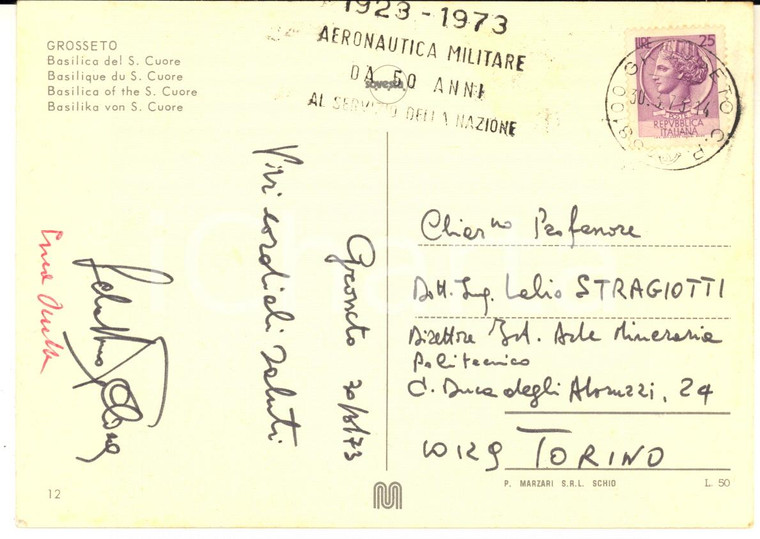 GROSSETO
Basilica del S. Cuore
Basilique du S. Cuore
Basilica of the S. Cuore
Basilika von S. Cuore
1923 - 1973
AERONAUTICA MILITARE
DA 50 ANNI
AL SERVIZIO DELLA NAZIONE
LIRE 25
REPVBBLICA
ITALIANA
Grosseto 30/3/73
Vivi cordiali saluti
Chiar.mo Professore
Dott. Ing. Lelio STRAGIOTTI
Direttore Ist. Arte Mineraria
Politecnico
C. Duca degli Abruzzi, 24
10129 TORINO
12
P. MARZARI S.R.L. SCHIO
L. 50